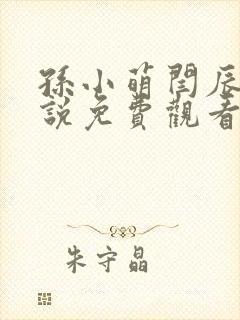 孫小萌閆辰
說免費觀看
朱守晶